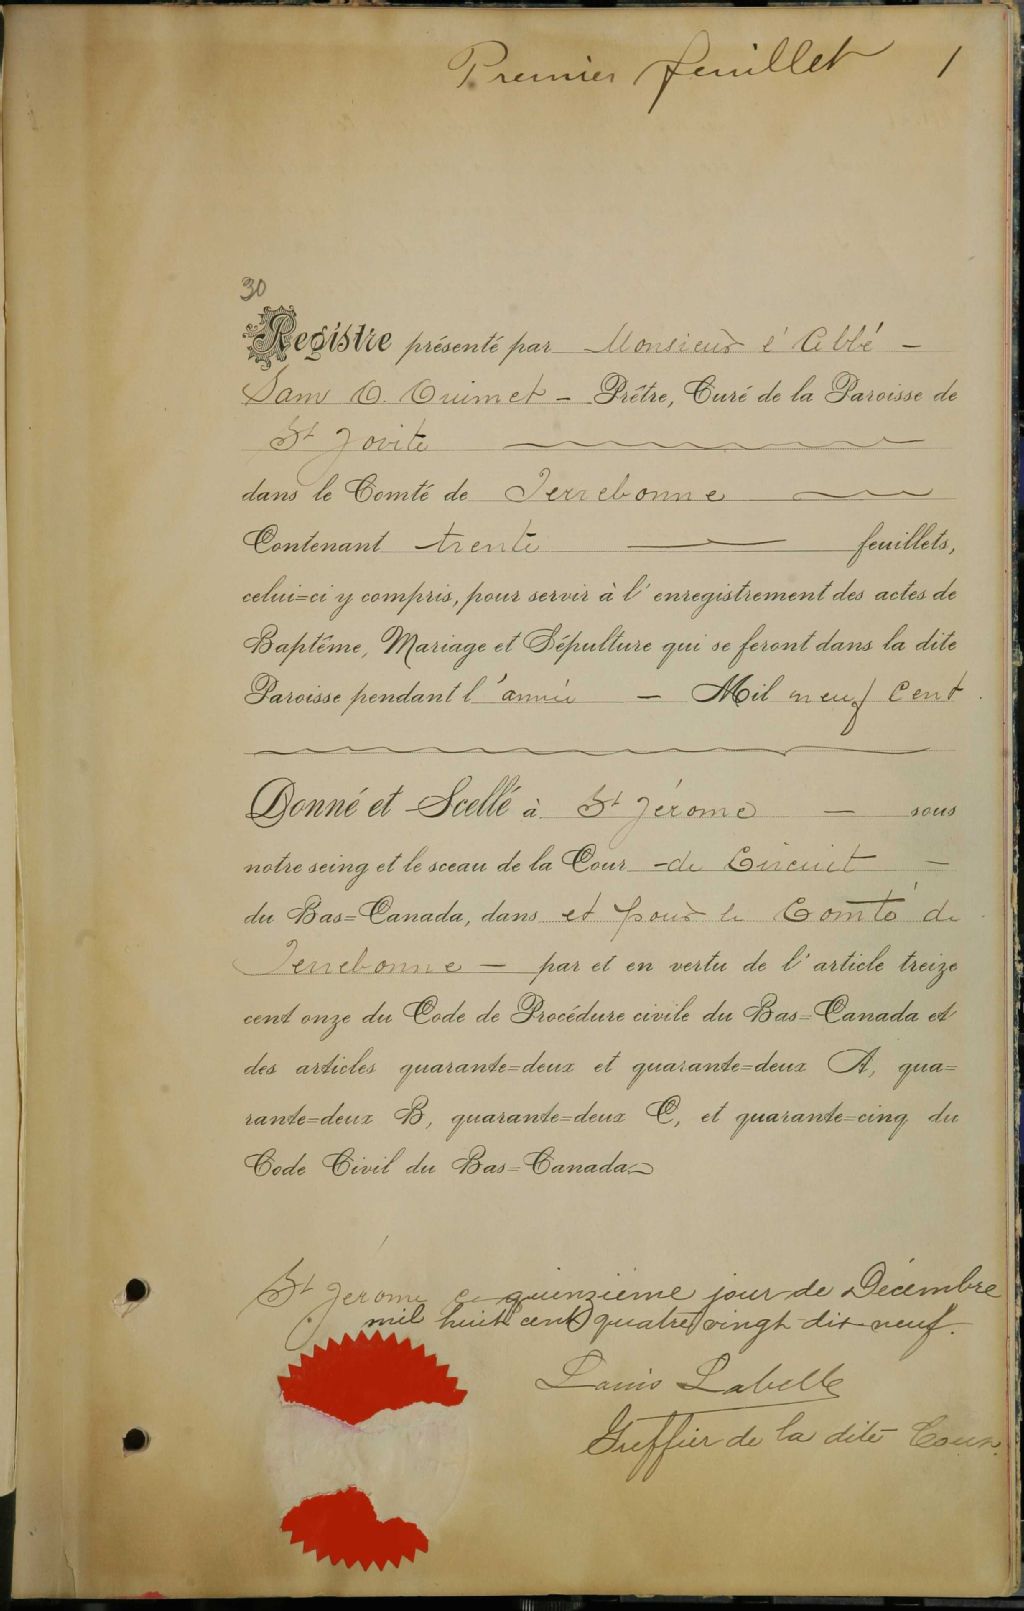 Premier feuillet 1
30
Registre présenté par Monsieur l'Abbé –
Sam O. Ouimet – Prêtre, Curé de la Paroisse de
St Jovite
dans le Comté de Terrebonne
Contenant trente feuillets,
celui=ci y compris, pour servir à l'enregistrement des actes de
Baptême, Mariage et Sépulture qui se feront dans la dite
Paroisse pendant l'année – Mil neuf Cent
Donné et Scellé à St Jérome – sous
notre seing et le sceau de la Cour de Circuit –
du Bas=Canada, dans et pour le Comté de
Terrebonne – par et en vertu de l'article treize
cent onze du Code de Procédure civile du Bas=Canada et
des articles quarante=deux et quarante=deux A, qua=
rante=deux B, quarante=deux C, et quarante=cinq du
Code Civil du Bas=Canada.
St Jérome ce quinzième jour de Décembre
mil huit cent quatre vingt dix neuf.
Louis Labelle
Greffier de la dite Cour.